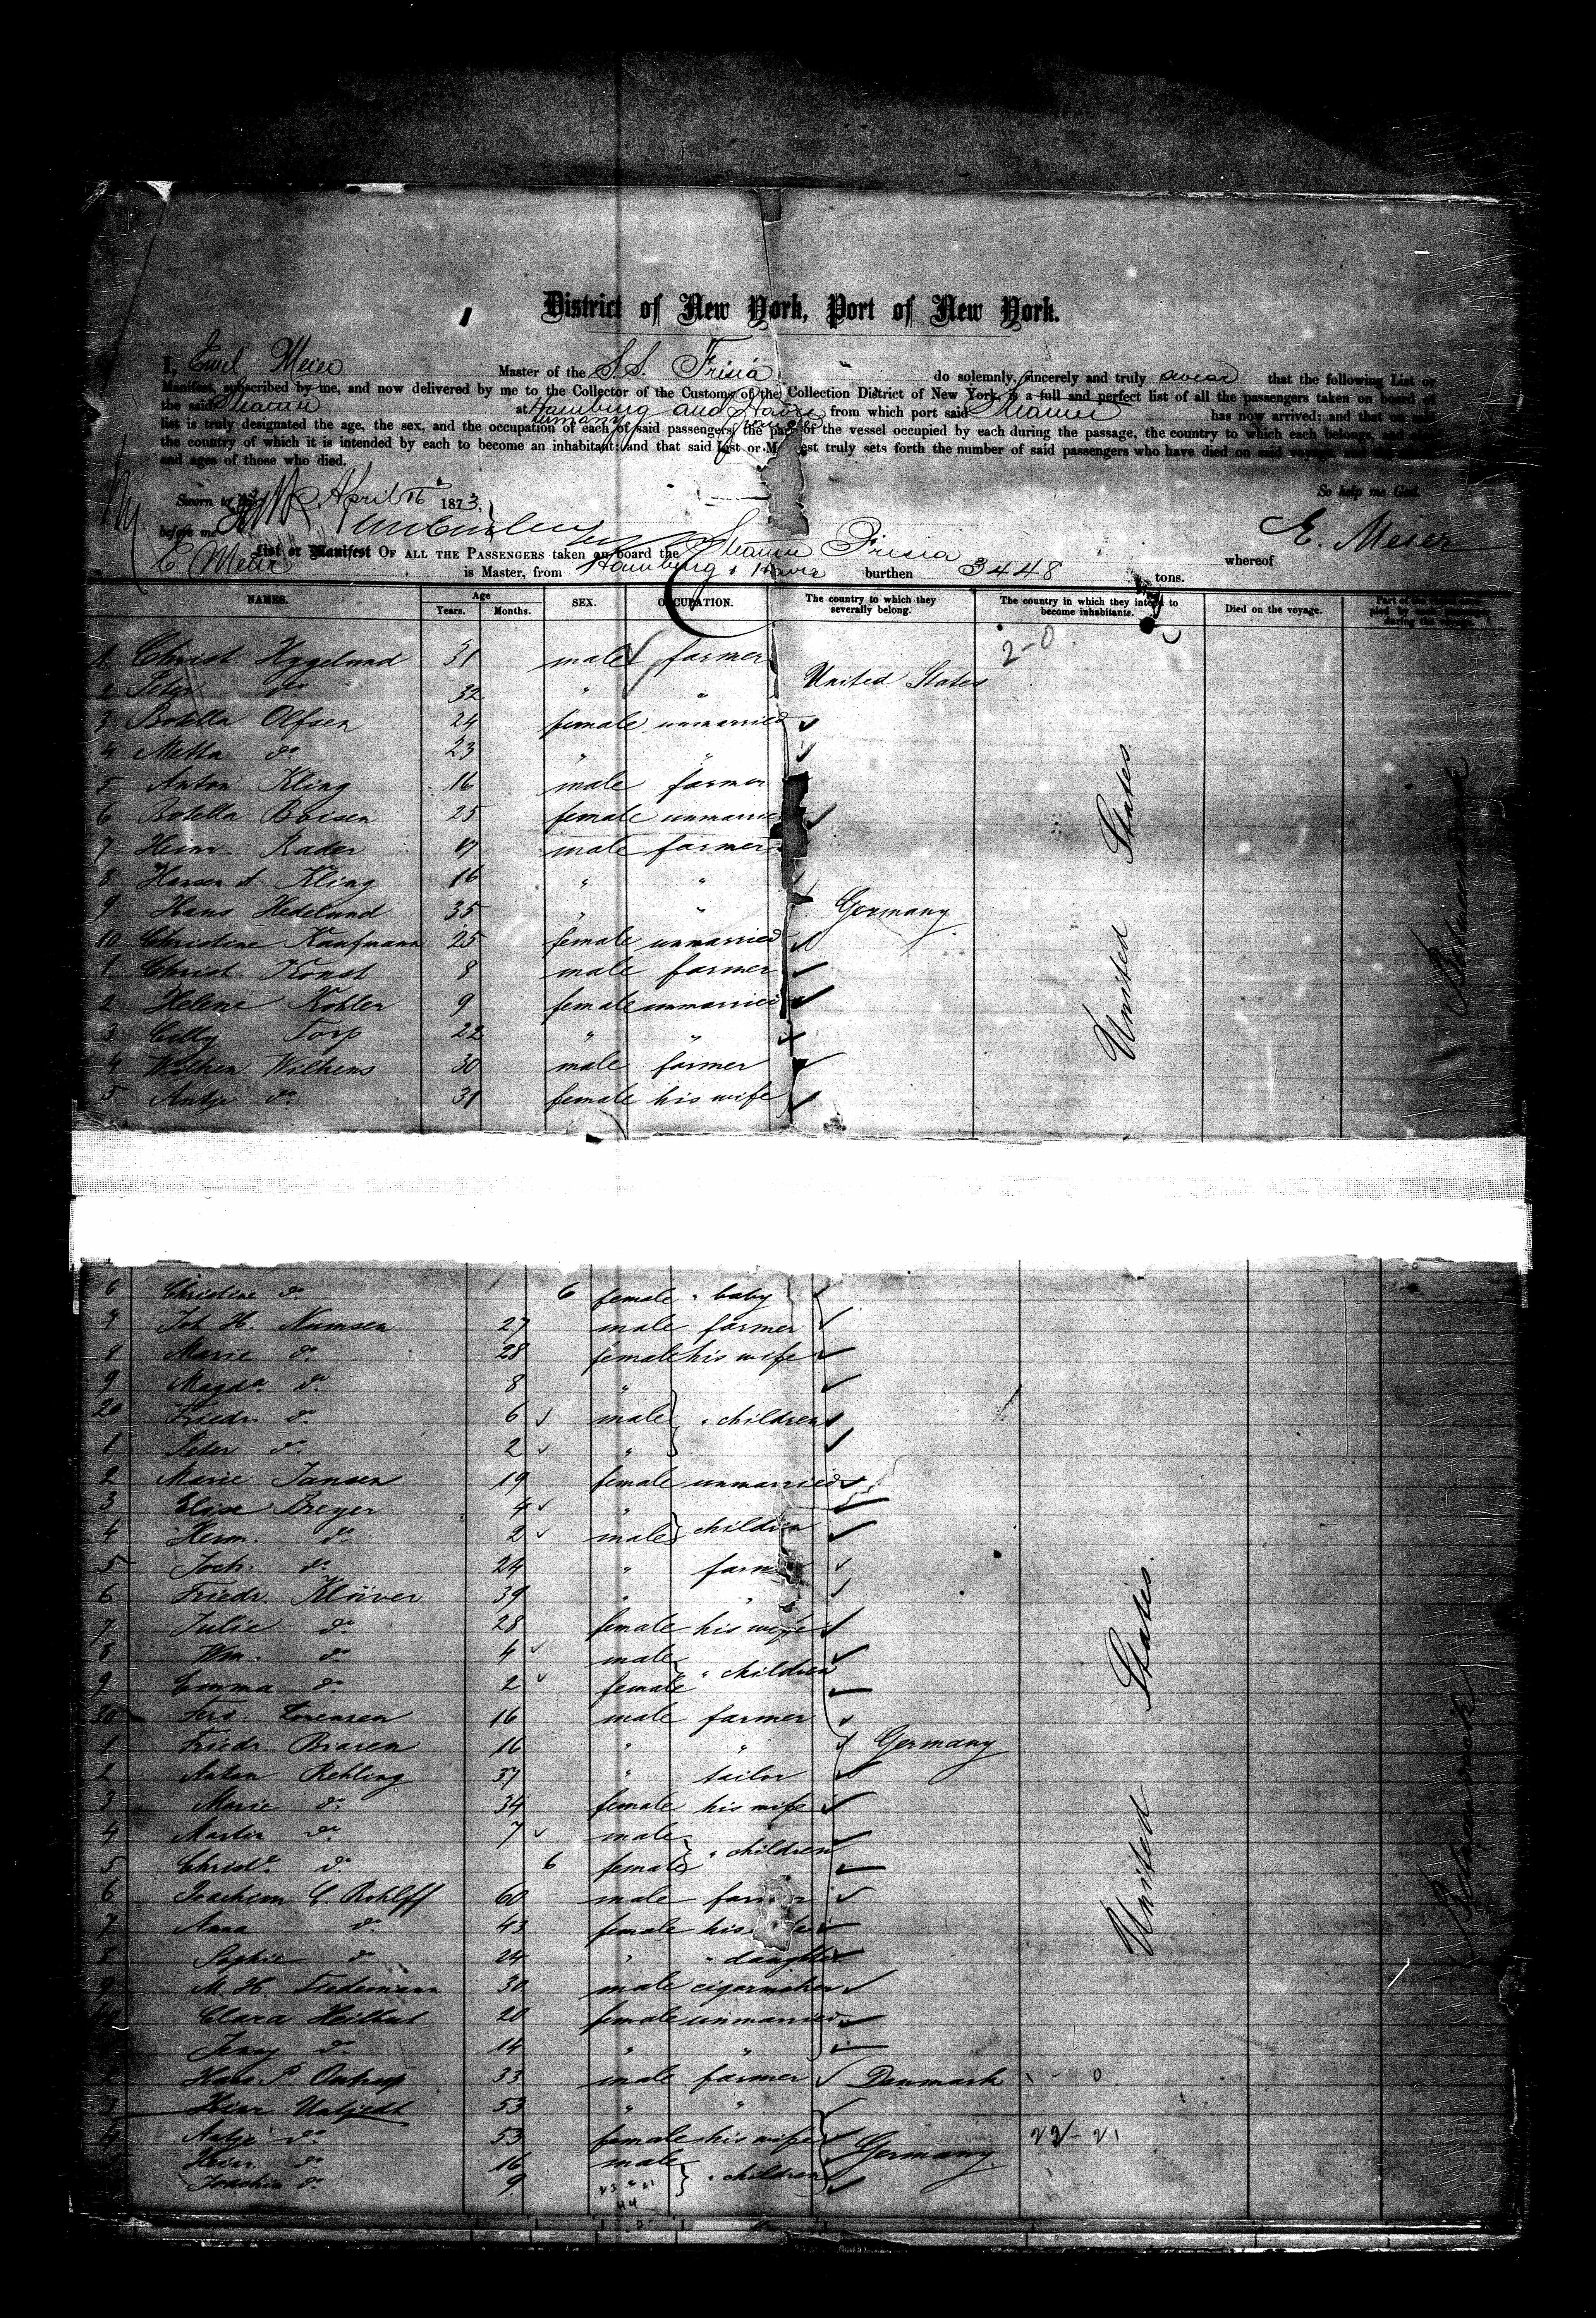 District of New York, Port of New York.
I, Emil Meier Master of the S.S. Frisia do solemnly, sincerely and truly swear that the following List or
Manifest, subscribed by me, and now delivered by me to the Collector of the Customs of the Collection District of New York, is a full and perfect list of all the passengers taken on board of
the said Steamer at Hamburg and Havre from which port said Steamer has now arrived; and that on said
list is truly designated the age, the sex, and the occupation of each of said passengers, the part of the vessel occupied by each during the passage, the country to which each belongs, and also
the country of which it is intended by each to become an inhabitant; and that said List or Manifest truly sets forth the number of said passengers who have died on said voyage, and the names
and ages of those who died.
So help me God.
Sworn to this April 16 1873,
before me
E. Meier
List or Manifest OF ALL THE PASSENGERS taken on board the Steamer Frisia whereof
E Meier is Master, from Hamburg & Havre burthen 3448 tons.
NAMES. Age Years. Months. SEX. OCCUPATION. The country to which they severally belong. The country in which they intend to become inhabitants. Died on the voyage. Part of the vessel occupied by each passenger during the voyage.
2-0
1 Christ. Hygelund 31 male farmer
2 Peter do 32 " " United States
3 Botella Olfsen 24 female unmarried
4 Metta do 23 " "
5 Anton Kling 16 male farmer
6 Botella Boisen 25 female unmarried
7 Heinr. Rader 17 male farmer
8 Hansen A. Kling 16 " "
9 Hans Hedelund 35 " " Germany
10 Christine Kaufmann 25 female unmarried
1 Christ. Konst 8 male farmer
2 Helene Kohler 9 female unmarried
3 Cilly Torp 22 " "
4 Wilhens 30 male farmer
5 Antje do 31 female his wife
United States
6 Christine do 6 female " baby
7 Joh. H. Namsen 27 male farmer
8 Marie do 28 female his wife
9 Magda do 8 "
20 Friedr. do 6 male " children
1 Peter do 2 "
2 Marie Jansen 19 female unmarried
3 Elise Breyer 4 "
4 Herm. do 2 male children
5 Joch. do 24 " farmer
6 Friedr. Klüver 39 " "
7 Julie do 28 female his wife
8 Wm. do 4 male
9 Emma do 2 female " children
30 Ferd. Lorensen 16 male farmer
1 Friedr. Braren 16 " " Germany
2 Anton Rehling 37 " tailor
3 Marie do 34 female his wife
4 Martin do 7 male
5 Christ. do 6 female " children
6 Joachim C. Rohlff 60 male farmer
7 Anna do 43 female his wife
8 Sophie do 24 " " daughter
9 M. H. Tiedemann 30 male cigarmaker
40 Clara Heilbut 20 female unmarried
1 Jenny do 14 " "
2 Hans P. Ontrup 33 male farmer Denmark 0
3 Heinr. 53 " "
4 Antje do 53 female his wife Germany 22-21
Heinr. do 16 male
Joachim do 9 " " children
United States
44